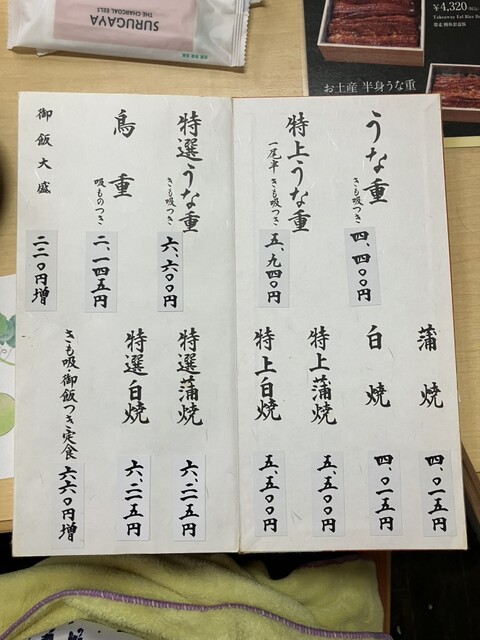 SURUGAYA
THE CHARCOAL EELS
¥4,320(税込)
Takeaway Eel Rice Bo
お土産 半身うな重
うな重
きも吸つき
四、四〇〇円
特上うな重
一尾半 きも吸つき
五、九四〇円
蒲焼
四、〇一五円
白焼
四、〇一五円
特上蒲焼
五、五〇〇円
特上白焼
五、五〇〇円
特選うな重
きも吸つき
六、六〇〇円
鳥重
吸ものつき
二、一四五円
御飯大盛
二二〇円増
特選蒲焼
六、二一五円
特選白焼
六、二一五円
きも吸・御飯つき定食
六六〇円増